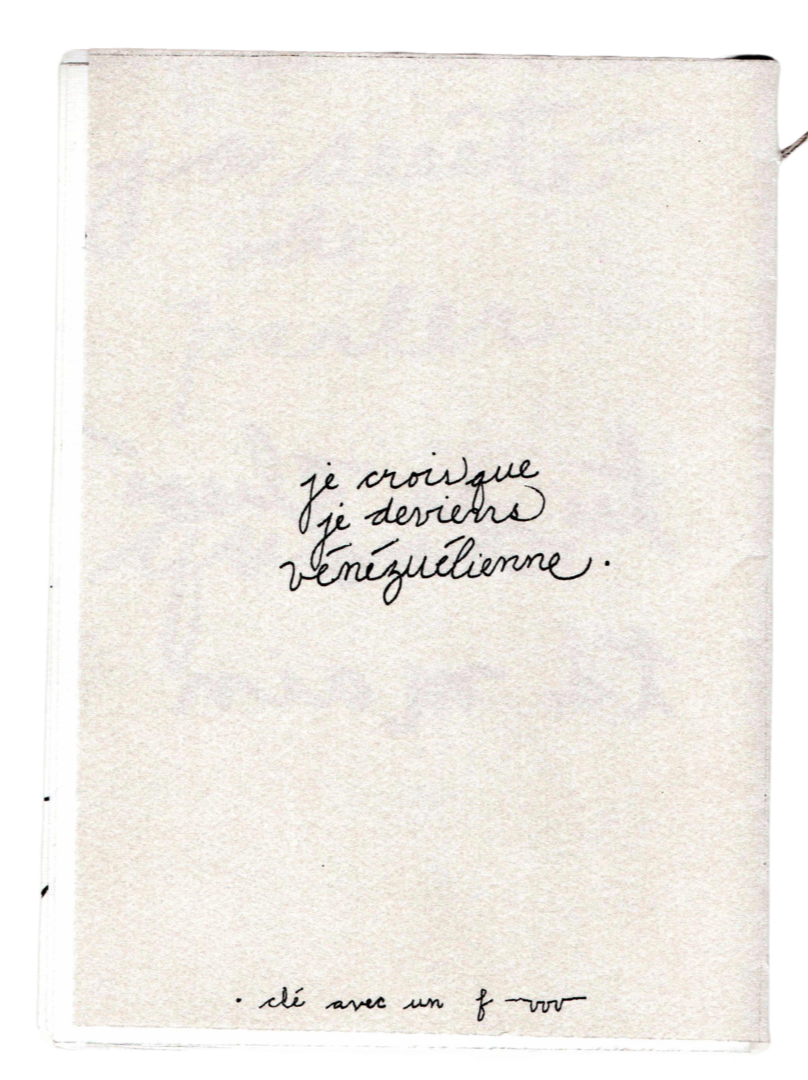 je crois que
je deviens
vénézuélienne.
· clé avec un f